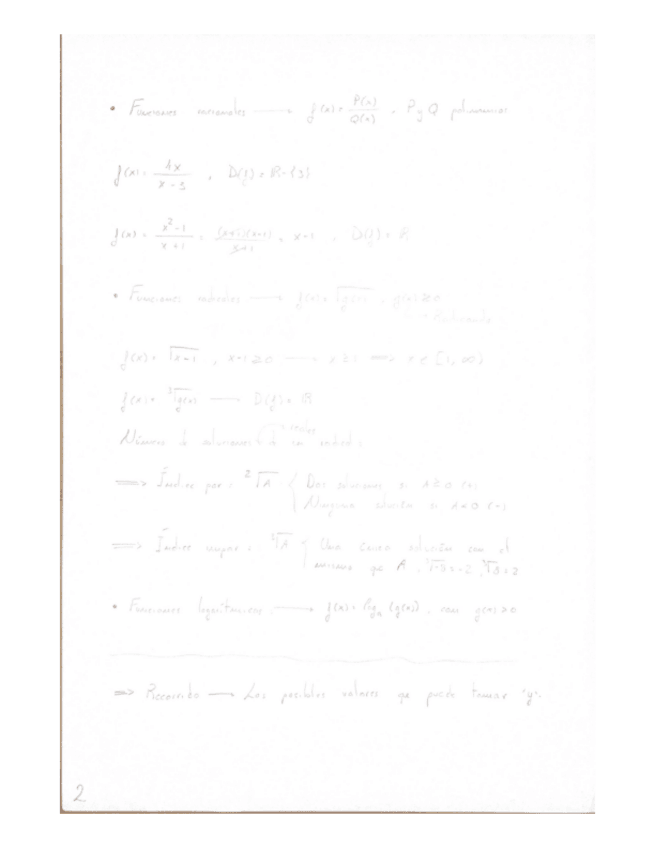 • Funciones racionales ⟶ f(x) = P(x)/Q(x) , P y Q polinomios
f(x) = 4x/(x-3) , D(f) = R-{3}
f(x) = (x²-1)/(x+1) = (x+1)(x-1)/(x+1) = x-1 , D(f) = R
• Funciones radicales ⟶ f(x) = √g(x) , g(x) ≥ 0
⟶ Radicando
f(x) = √(x-1) , x-1 ≥ 0 ⟶ x ≥ 1 ⟹ x ∈ [1, ∞)
f(x) = ³√g(x) ⟶ D(f) = R
reales
Número de soluciones de un radical:
⟹ Índice par: ²√A { Dos soluciones si A ≥ 0 (+)
Ninguna solución si A < 0 (-)
⟹ Índice impar: ³√A { Una única solución con el
mismo que A . ³√-8 = -2 , ³√8 = 2
• Funciones logarítmicas ⟶ f(x) = log (g(x)) , con g(x) > 0
⟹ Recorrido ⟶ Los posibles valores que puede tomar "y".
2